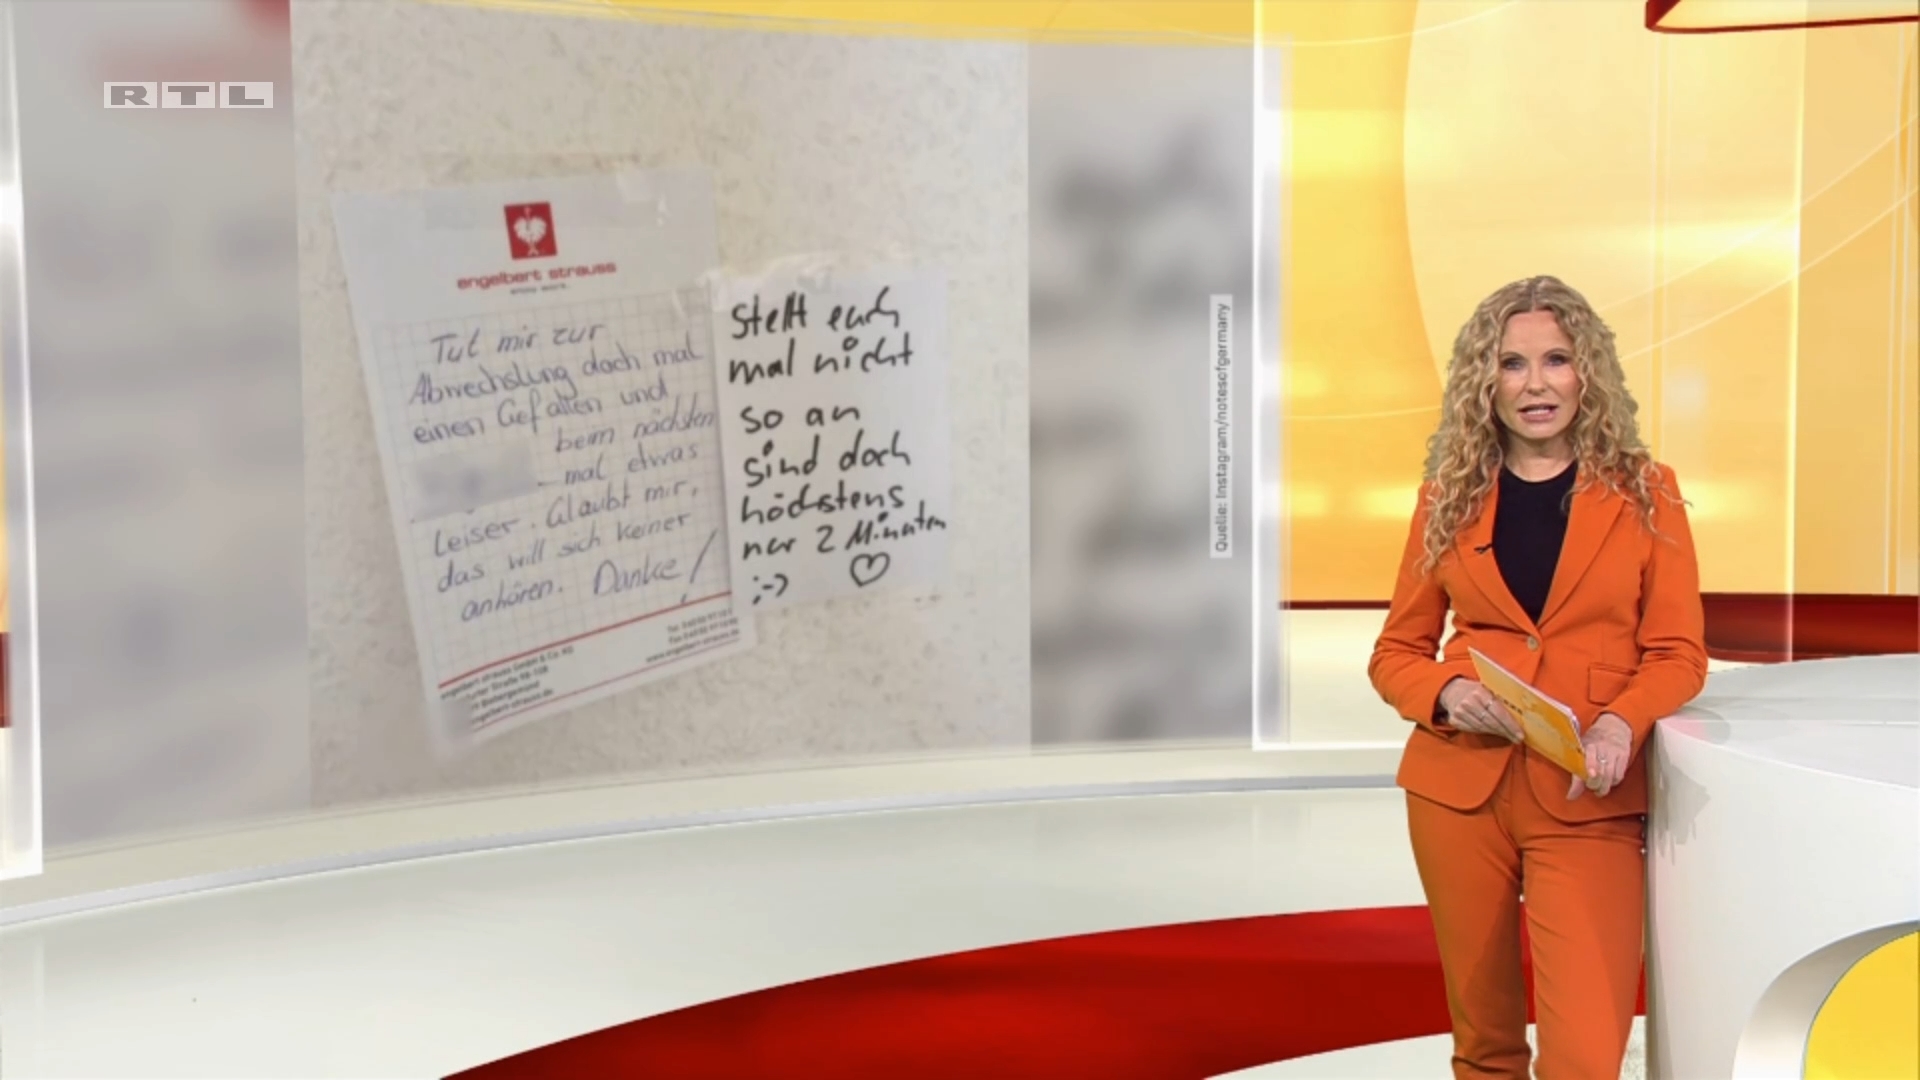 RTL
engelbert strauss
enjoy work.
Tut mir zur
Abwechslung doch mal
einen Gefallen und
beim nächsten
mal etwas
Leiser. Glaubt mir,
das will sich keiner
anhören. Danke!
engelbert strauss GmbH & Co. KG
www.engelbert-strauss.de
engelbert-strauss.de
Stellt euch
mal nicht
so an
sind doch
höchstens
nur 2 Minuten
;-) ♡
Quelle: Instagram/notesofgermany